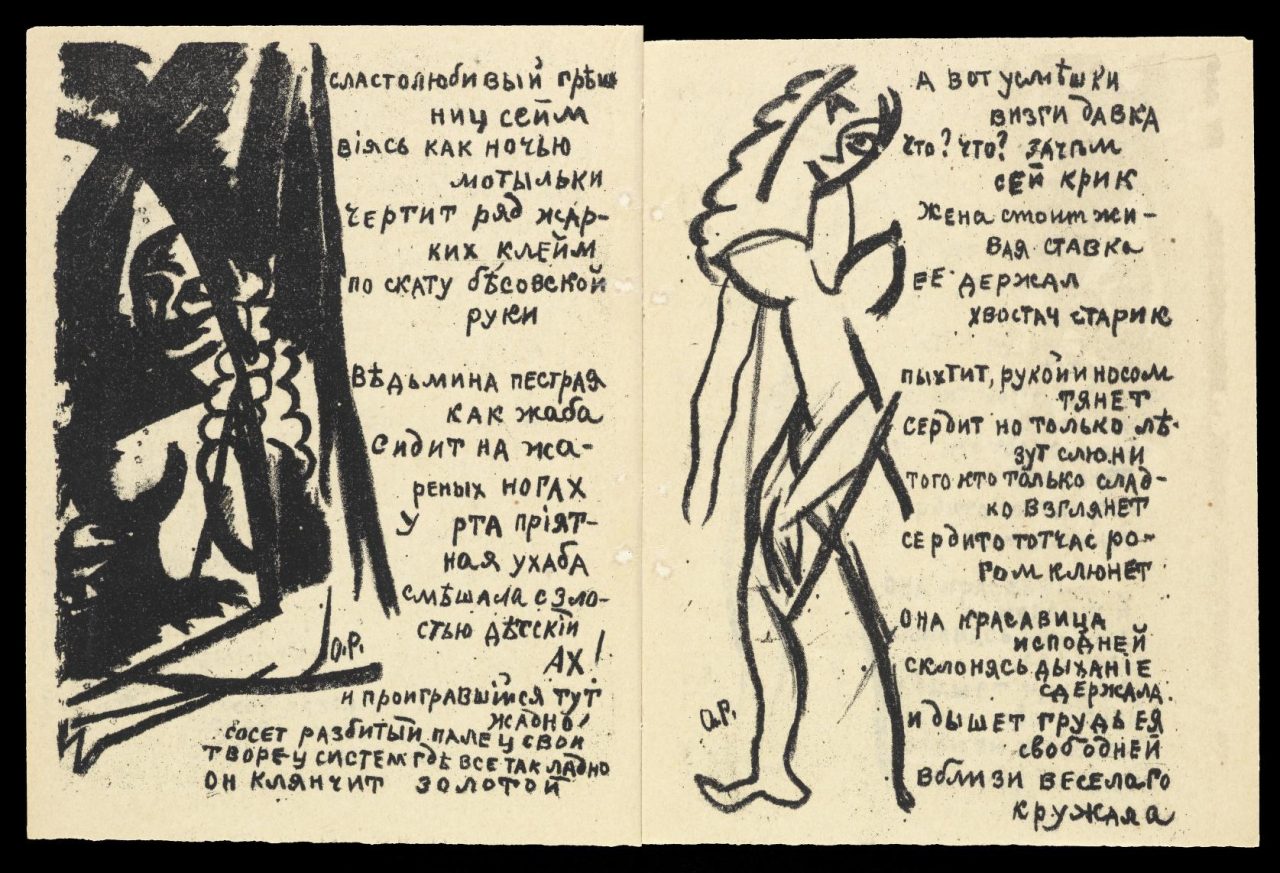 сластолюбивый грѣш
ниц сейм
віясь как ночью
мотыльки
чертит ряд жар-
ких клейм
по скату бѣсовской
руки
вѣдьмина пестрая
как жаба
сидит на жа-
реных ногах
у рта пріят-
ная ухаба
смѣшала с зло-
стью дѣтскій
ах!
и проигравшійся тут
жадно
сосет разбитый палец свой
творец систем гдѣ все так ладно
он клянчит золотой
О.Р.
А вот усмѣшки
визги давка
что? что? зачѣм
сей крик
жена стоит жи-
вая ставка
ее держал
хвостач старик
пыхтит, рукой и носом
тянет
сердит но только лѣ-
зут слюни
того кто только слад-
ко взглянет
сердито тотчас ро-
гом клюнет
она красавица
исподней
склонясь дыханіе
сдержала.
и дышет грудь ея
свободней
вблизи веселаго
кружала
О.Р.